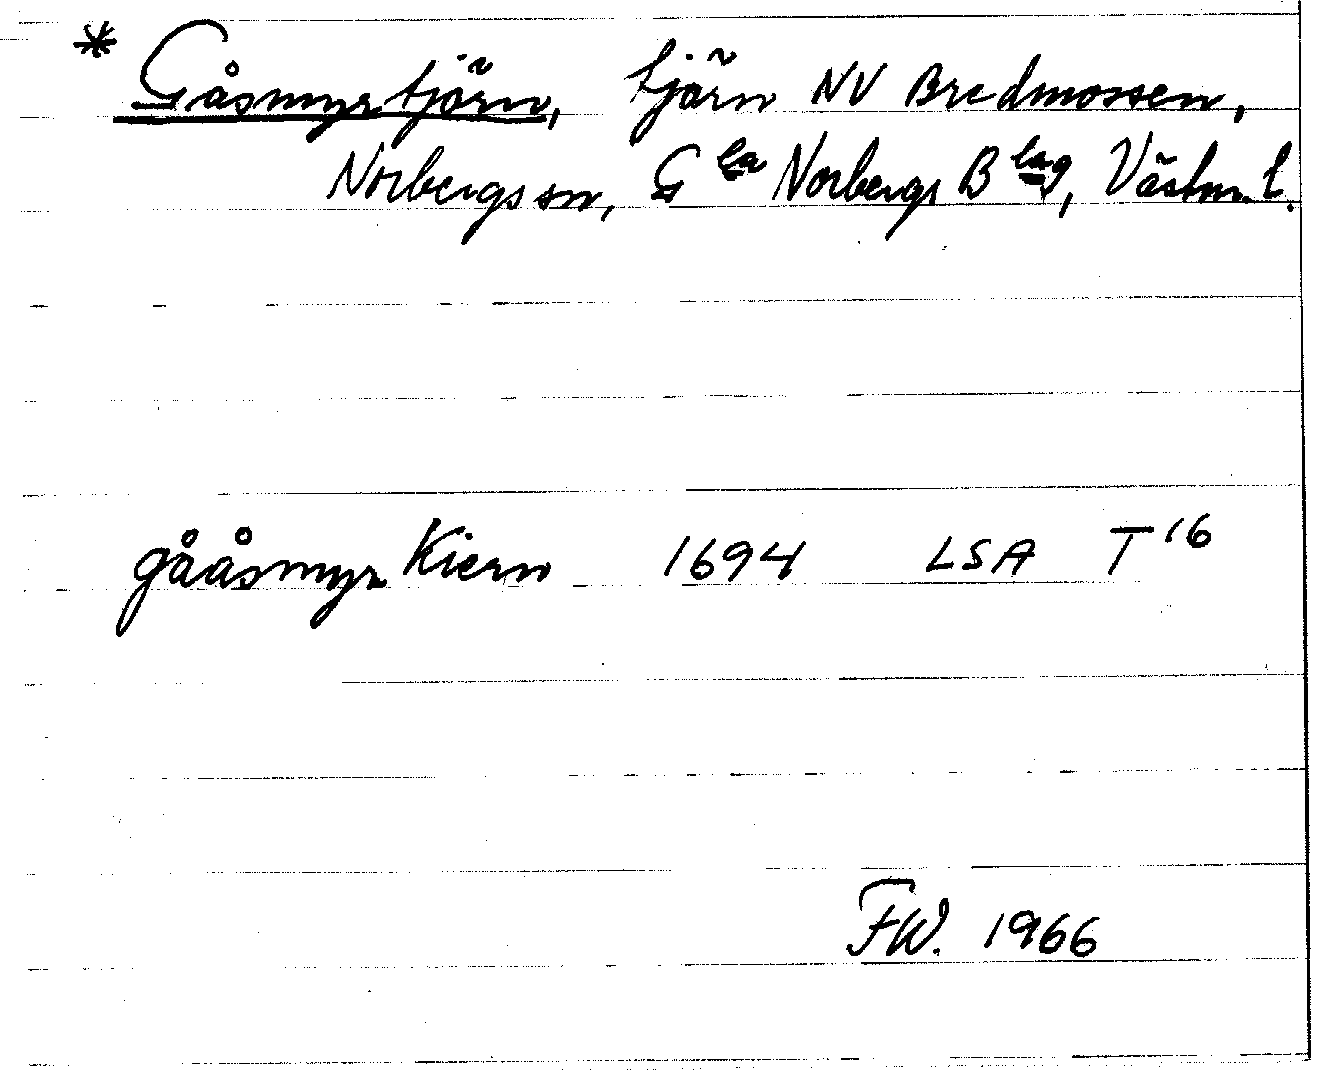 * Gåsmyrtjärn, tjärn NV Bredmossen,
Norbergs sn, Gla Norbergs Blag, Västm. l.
gååsmyr Kiern 1694 LSA T 16
FW. 1966